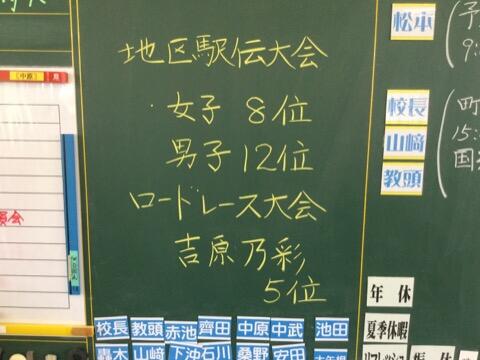 地区駅伝大会
女子 8位
男子 12位
ロードレース大会
吉原乃彩
5位
松本
校長
山﨑
教頭
年休
夏季休暇
校長 教頭 赤池 齊田 中原 中武 池田
青木 山﨑 下沖 石川 桑野 安田